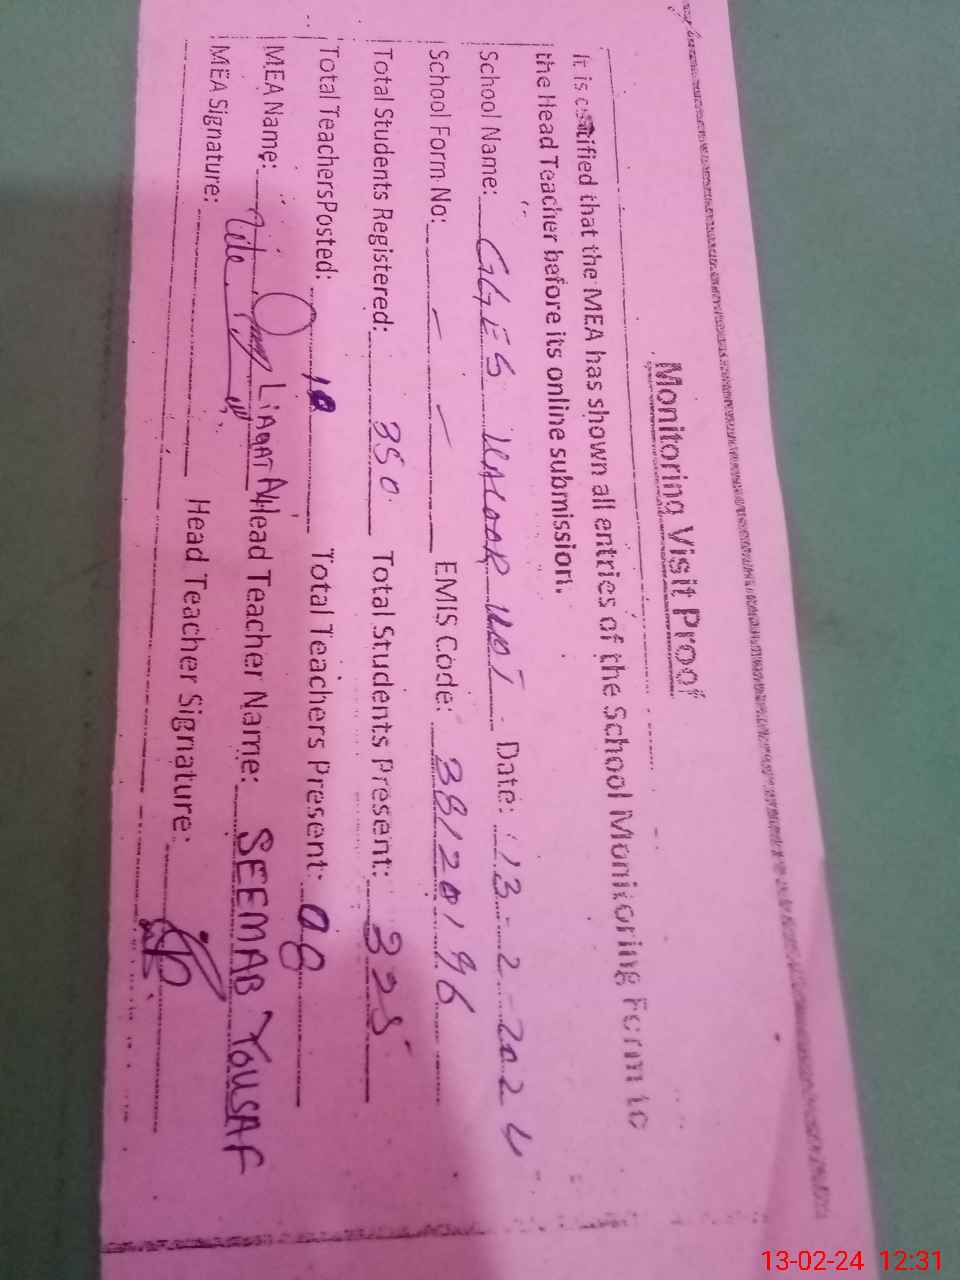 Monitoring Visit Proof
It is certified that the MEA has shown all entries of the School Monitoring Form to
the Head Teacher before its online submission.
School Name: GGES Date: 13-2-2024
School Form No: — — EMIS Code:
Total Students Registered: 350 Total Students Present: 335
Total Teachers Posted: 10 Total Teachers Present: 08
MEA Name: LIAQAT Ali Head Teacher Name: SEEMAB YOUSAF
MEA Signature: Head Teacher Signature:
13-02-24 12:31